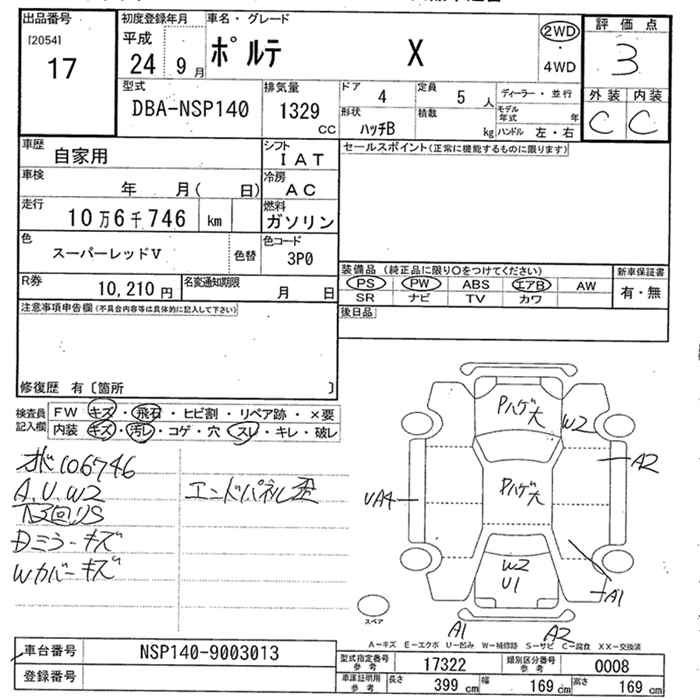 出品番号
[2054]
17
初度登録年月
平成
24年9月
車名・グレード
ポルテ X
2WD
・
4WD
評価点
3
外装 内装
C C
型式
DBA-NSP140
排気量
1329 CC
ドア 4
定員 5人
ディーラー・並行
形状 ハッチB
積数 kg
モデル年式 年
ハンドル 左・右
車歴
自家用
シフト
IAT
セールスポイント(正常に機能するものに限ります)
車検
年 月( 日)
冷房
AC
走行
10万6千746 km
燃料
ガソリン
色
スーパーレッドV
色替
色コード
3P0
装備品 (純正品に限り○をつけてください)
新車保証書
PS PW ABS エアB AW
有・無
SR ナビ TV カワ
R券
10,210円
名変通知期限
月 日
後日品
注意事項申告欄(不具合内容等は具体的に記入して下さい)
修復歴 有〔箇所 〕
検査員記入欄
FW キズ・飛石・ヒビ割・リペア跡・×要
内装 キズ・汚レ・コゲ・穴・スレ・キレ・破レ
106746
A.U.W2
エンドパネル歪
下廻りS
Dミラーキズ
Wカバーキズ
Pハゲ大
W2
A2
UA4
Pハゲ大
W2
U1
A1
A1
A2
スペア
A-キズ E-エクボ U-凹み W-補修跡 S-サビ C-腐食 XX-交換済
車台番号
NSP140-9003013
登録番号
型式指定番号参考
17322
類別区分番号参考
0008
車庫証明用参考
長さ 399 cm
幅 169 cm
高さ 169 cm